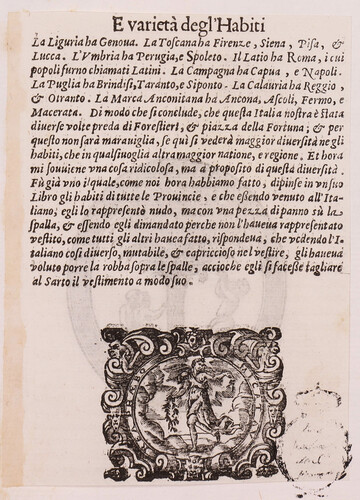 E varietà degl'Habiti
La Liguria ha Genoua. La Toscana ha Firenze, Siena, Pisa, &
Lucca. L'Vmbria ha Perugia, e Spoleto. Il Latio ha Roma, i cui
popoli furno chiamati Latini. La Campagna ha Capua, e Napoli.
La Puglia ha Brindisi, Taranto, e Siponto. La Calauria ha Reggio,
& Otranto. La Marca Anconitana ha Ancona, Ascoli, Fermo, e
Macerata. Di modo che si conclude, che questa Italia nostra è stata
diuerse volte preda di Forestieri, & piazza della Fortuna; & per
questo non sarà marauiglia, se quì si vederà maggior diuersità ne gli
habiti, che in qualsiuoglia altra maggior natione, e regione. Et hora
mi souuiene vna cosa ridicolosa, ma a proposito di questa diuersità.
Fù già vno il quale, come noi hora habbiamo fatto, dipinse in vn suo
Libro gli habiti di tutte le Prouincie, e che essendo venuto all'Ita-
liano, egli lo rappresentò nudo, ma con vna pezza di panno sù la
spalla, & essendo egli dimandato perche non l'haueua rappresentato
vestito, come tutti gli altri hauea fatto, rispondeua, che vedendo l'I-
taliano così diuerso, mutabile, & capriccioso nel vestire, gli haueua
voluto porre la robba sopra le spalle, accioche egli si facesse tagliare
al Sarto il vestimento a modo suo.